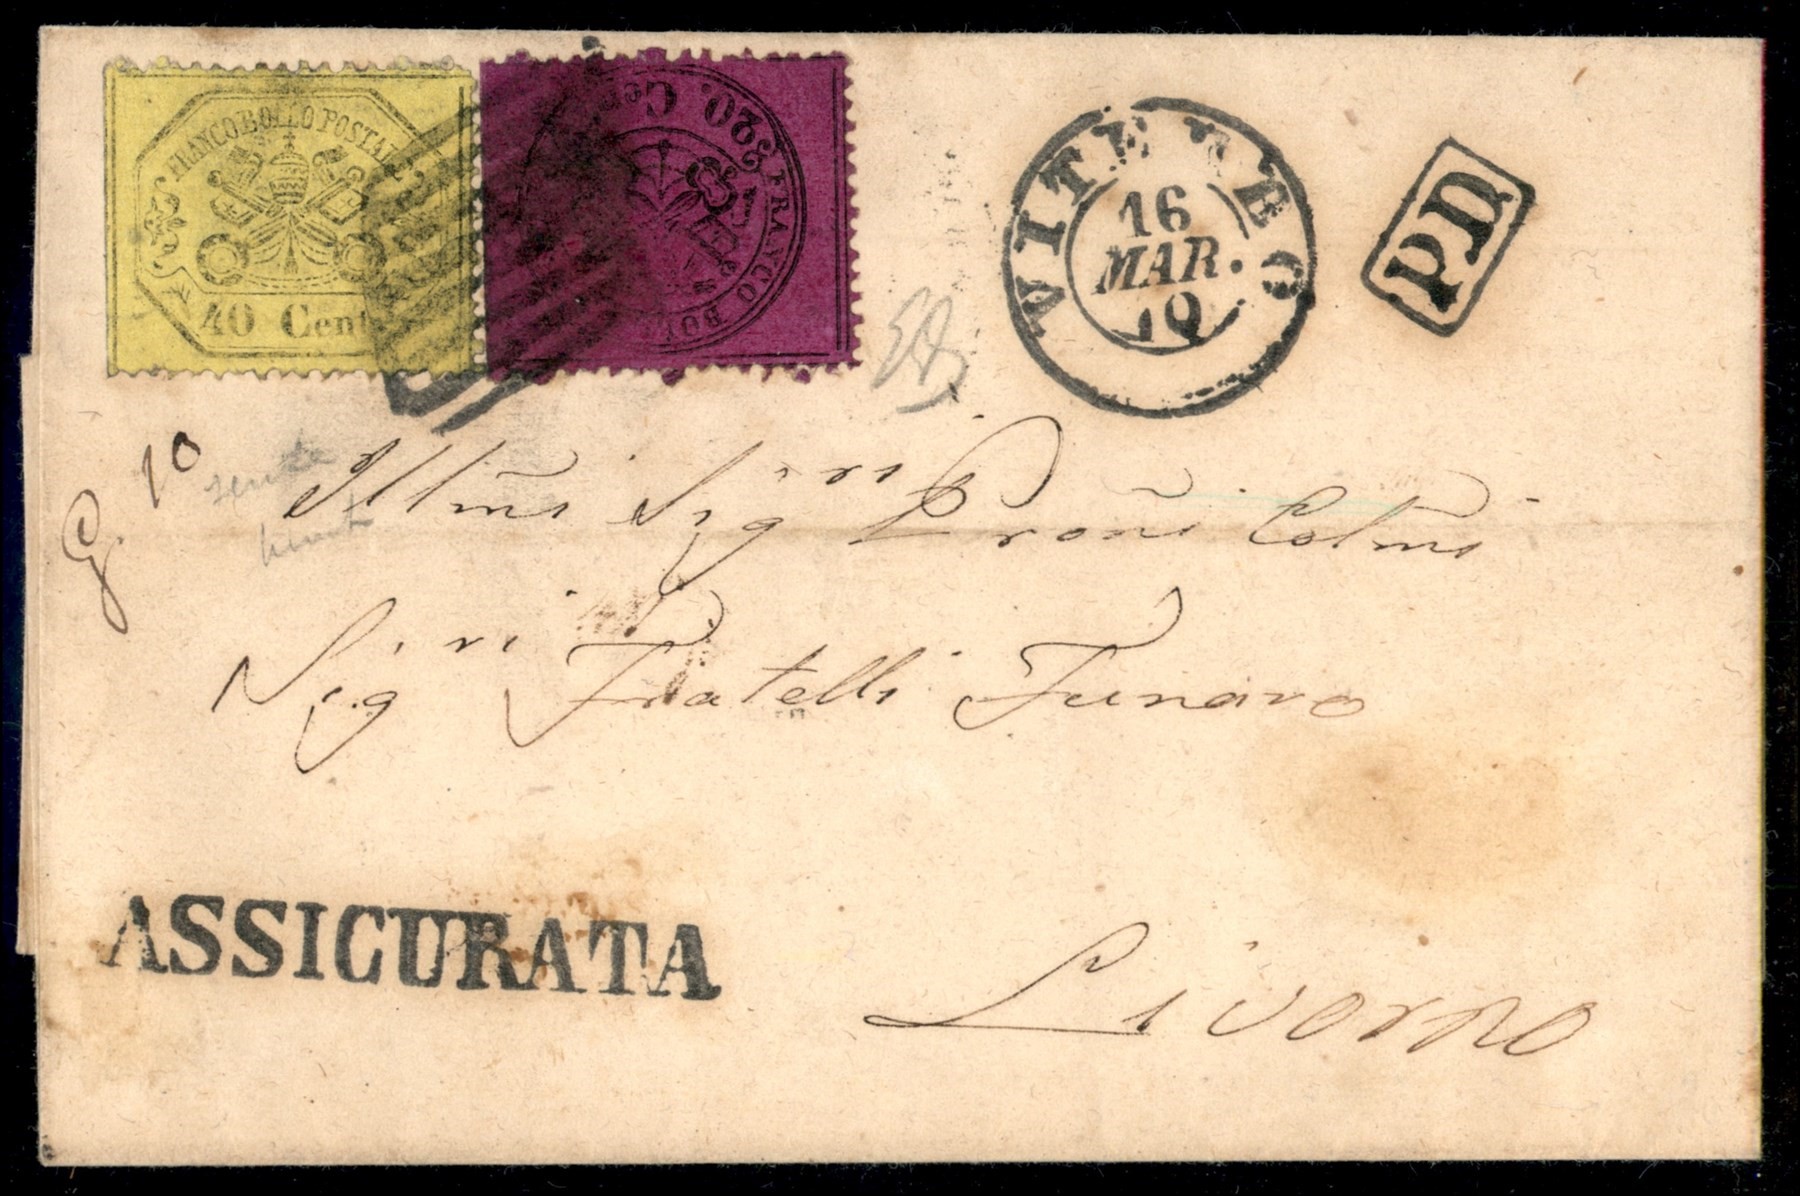 FRANCOBOLLO POSTALE
40 Cent
FRANCO BOL
20. Cen
VITERBO
16
MAR.
70
P.D
G. 10
senza
Illmi Sigri Proñi Colmi
Sigri Fratelli Funaro
ASSICURATA
Livorno